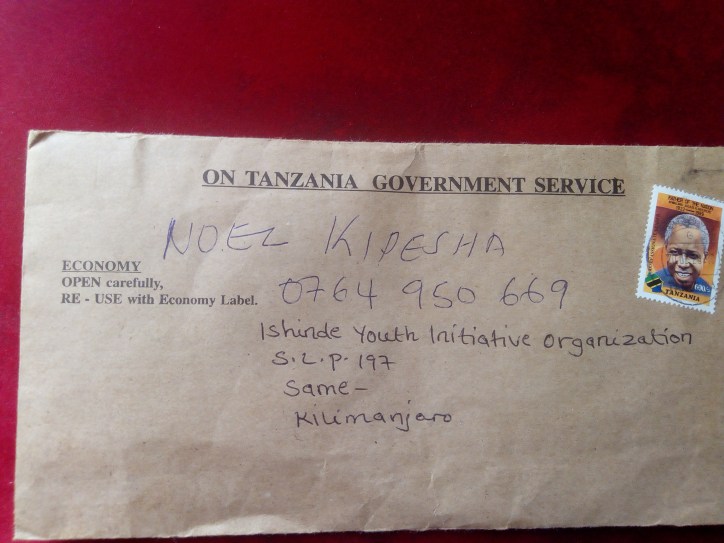 ON TANZANIA GOVERNMENT SERVICE
NOEL KIPESHA
ECONOMY
OPEN carefully,
RE - USE with Economy Label.
0764 950 669
Ishinde Youth Initiative Organization
S.L.P. 197
Same-
Kilimanjaro
FATHER OF THE NATION
600/-
TANZANIA